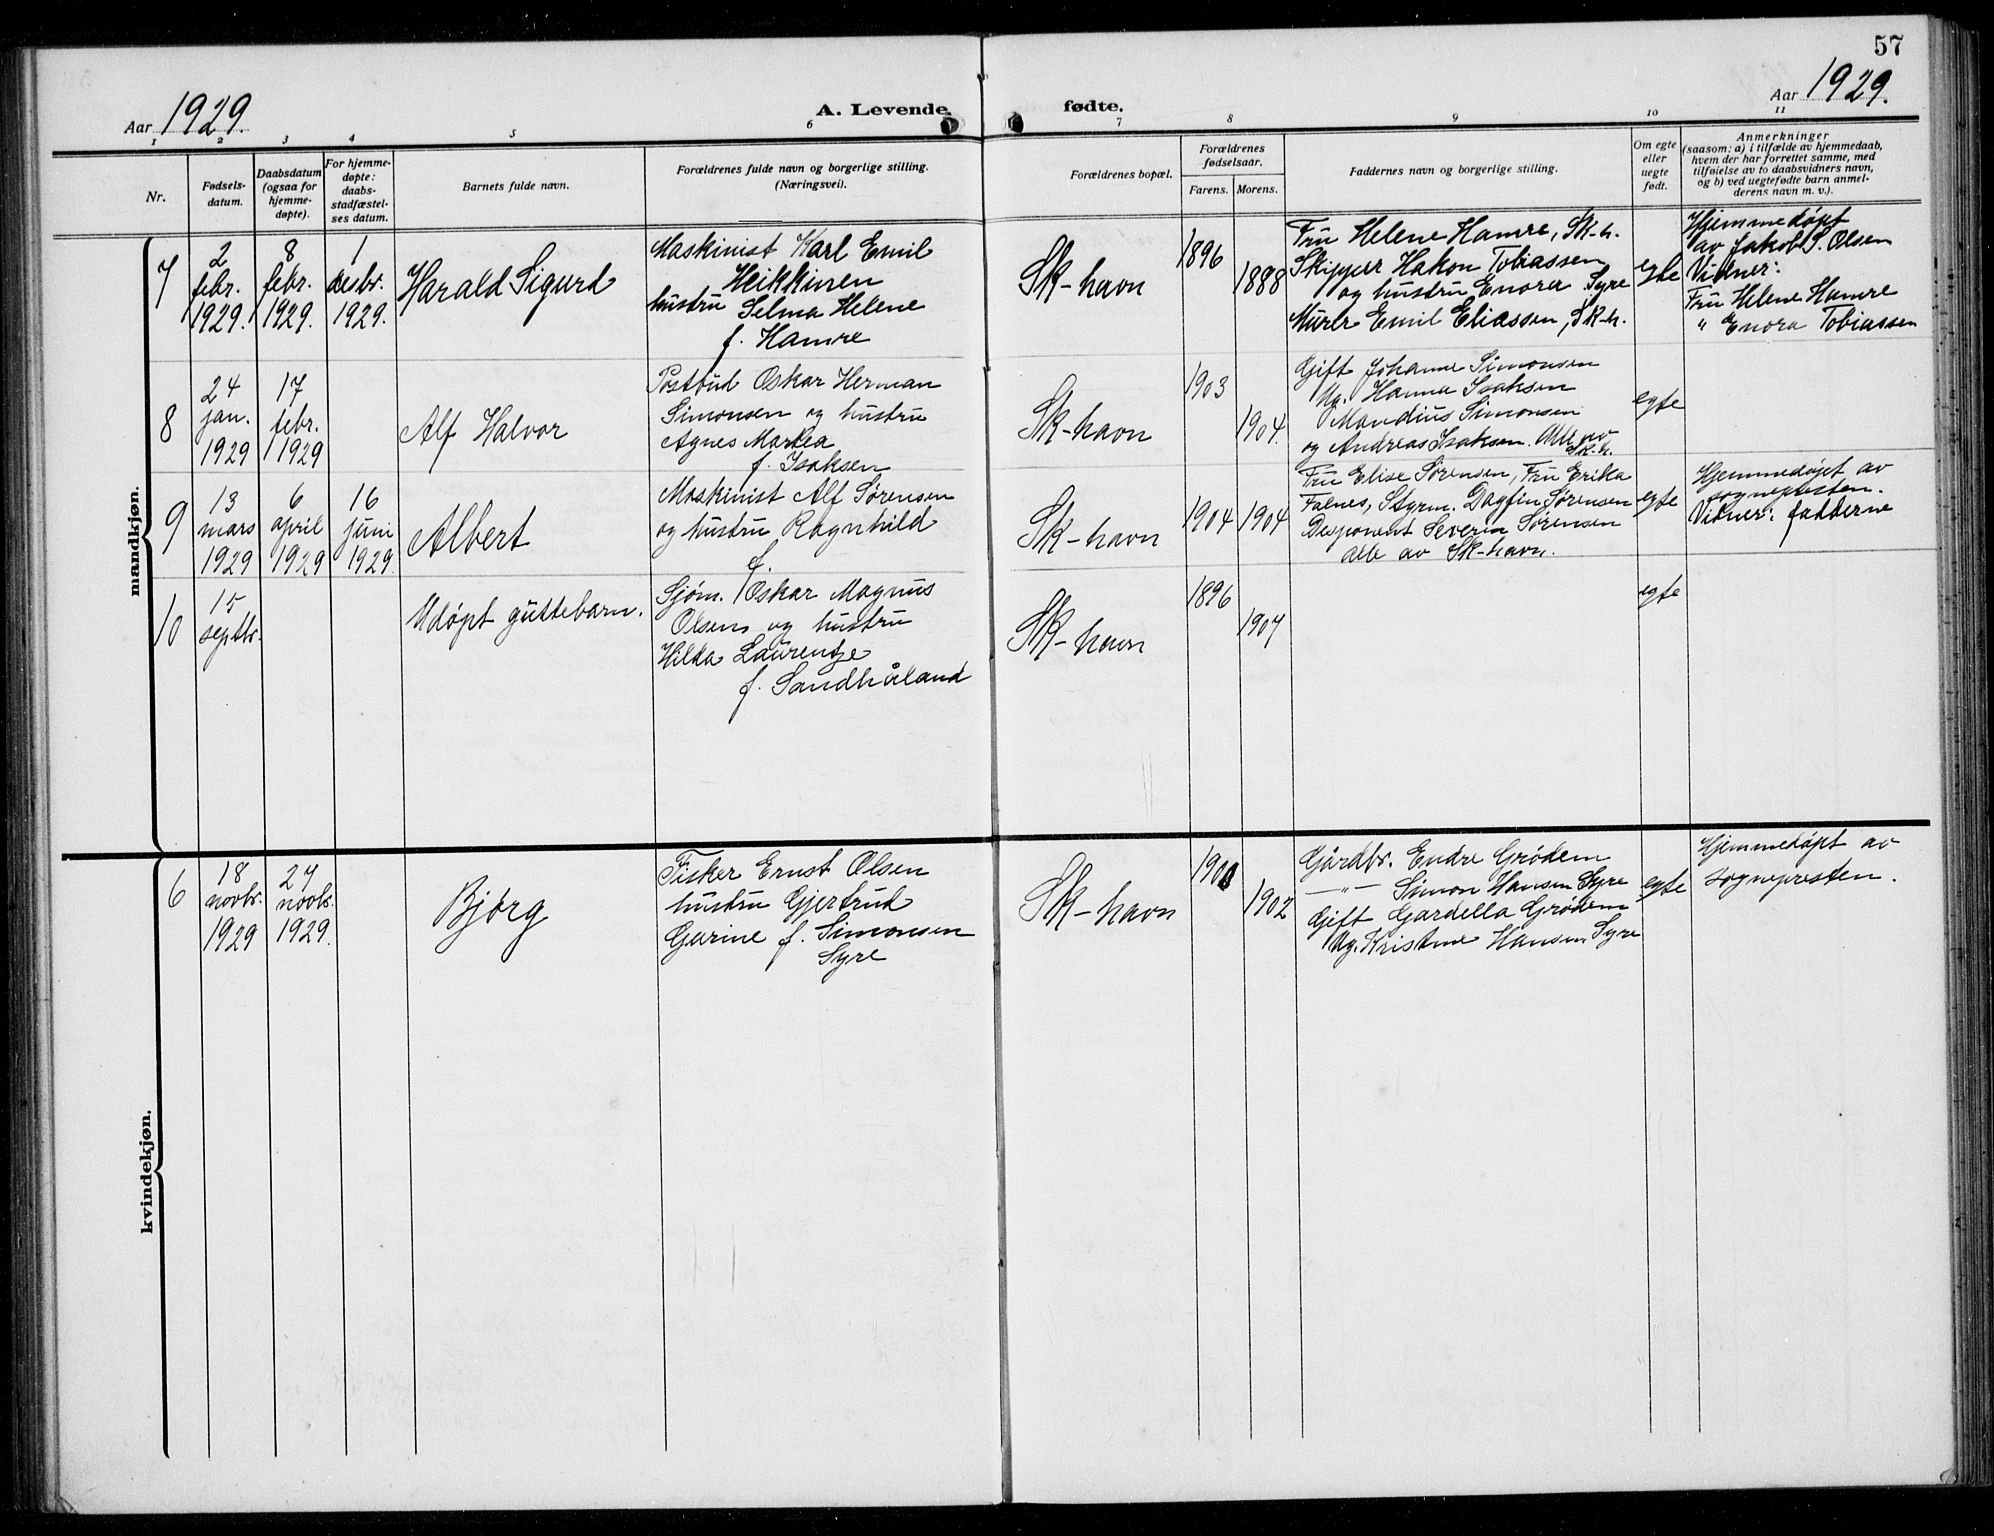 57
Aar 1929.
A. Levende
fødte.
Aar 1929.
1 2 3 4 5 6 7 8 9 10 11
Nr.
Fødsels-
datum.
Daabsdatum
(ogsaa for
hjemme-
døpte).
For hjemme-
døpte:
daabs-
stadfæstel-
ses datum.
Barnets fulde navn.
Forældrenes fulde navn og borgerlige stilling.
(Næringsvei).
Forældrenes bopæl.
Forældrenes
fødselsaar.
Farens. Morens.
Faddernes navn og borgerlige stilling.
Om egte
eller
uegte
født.
Anmerkninger
(saasom: a) i tilfælde av hjemmedaab,
hvem der har forrettet samme, med
tilføielse av to daabsvidners navn,
og b) ved uegtefødte barn anmel-
derens navn m. v.).
mandkjøn.
7
2
febr.
1929.
8
febr.
1929.
1
desbr.
1929.
Harald Sigurd
Maskinist Karl Emil
Heikkinen
hustru Selma Helene
f. Hamre
Sk-havn
1896
1888
Fru Helene Hamre, Sk-h.
Skipper Hakon Tobiassen
og hustru Enora Syre
Murer Emil Eliassen, Sk-h.
egte
Hjemmedøpt
av Jakob S. Olsen
Vidner:
Fru Helene Hamre
" Enora Tobiassen
8
24
jan.
1929
17
febr.
1929
Alf Halvor
Postbud Oskar Herman
Simonsen og hustru
Agnes Martea
f. Isaksen
Sk-havn
1903
1904.
Gift Johanne Simonsen
Ug. Hanna Isaksen
Mandius Simonsen
og Andreas Isaksen. Alle av
Sk-h.
egte
9
13
mars
1929
6
april
1929
16
juni
1929.
Albert
Maskinist Alf Sørensen
og hustru Ragnhild
f.
Sk-havn
1904
1904
Fru Elise Sørensen, Fru Erika
Falnes, Styrm. Dagfin Sørensen
Desponent Severin Sørensen
alle av Sk-havn.
egte
Hjemmedøpt av
sognepresten.
Vidner: fadderne
10
15
septbr.
Udøpt guttebarn.
Sjøm. Oskar Magnus
Olsen og hustru
Hilda Laurentze
f. Sandhåland
Sk-havn
1896
1907
egte
kvindekjøn.
6
18
novbr.
1929
24
novbr.
1929.
Bjørg
Fisker Ernst Olsen
hustru Gjertrud
Gurine f. Simonsen
Syre
Sk-havn
1900
1902
Gårdbr. Endre Grødem
—"— Simon Hansen Syre
Gift Gardella Grødem
Ug. Kristine Hansen Syre
egte
Hjemmedøpt av
sognepresten.